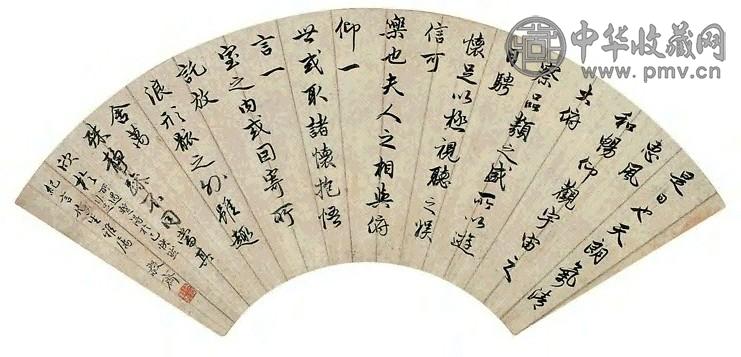 中华收藏网
www.pmv.cn
是日也天朗氣清
惠風
和暢仰觀宇宙之
大俯
察品類之盛所以遊
目騁
懷足以極視聽之娛
信可
樂也夫人之相與俯
仰一
世或取諸懷抱悟
言一
室之内或因寄所
託放
浪形骸之外雖趣
舍萬
殊靜躁不同當其
欣於
紀言先生雅屬